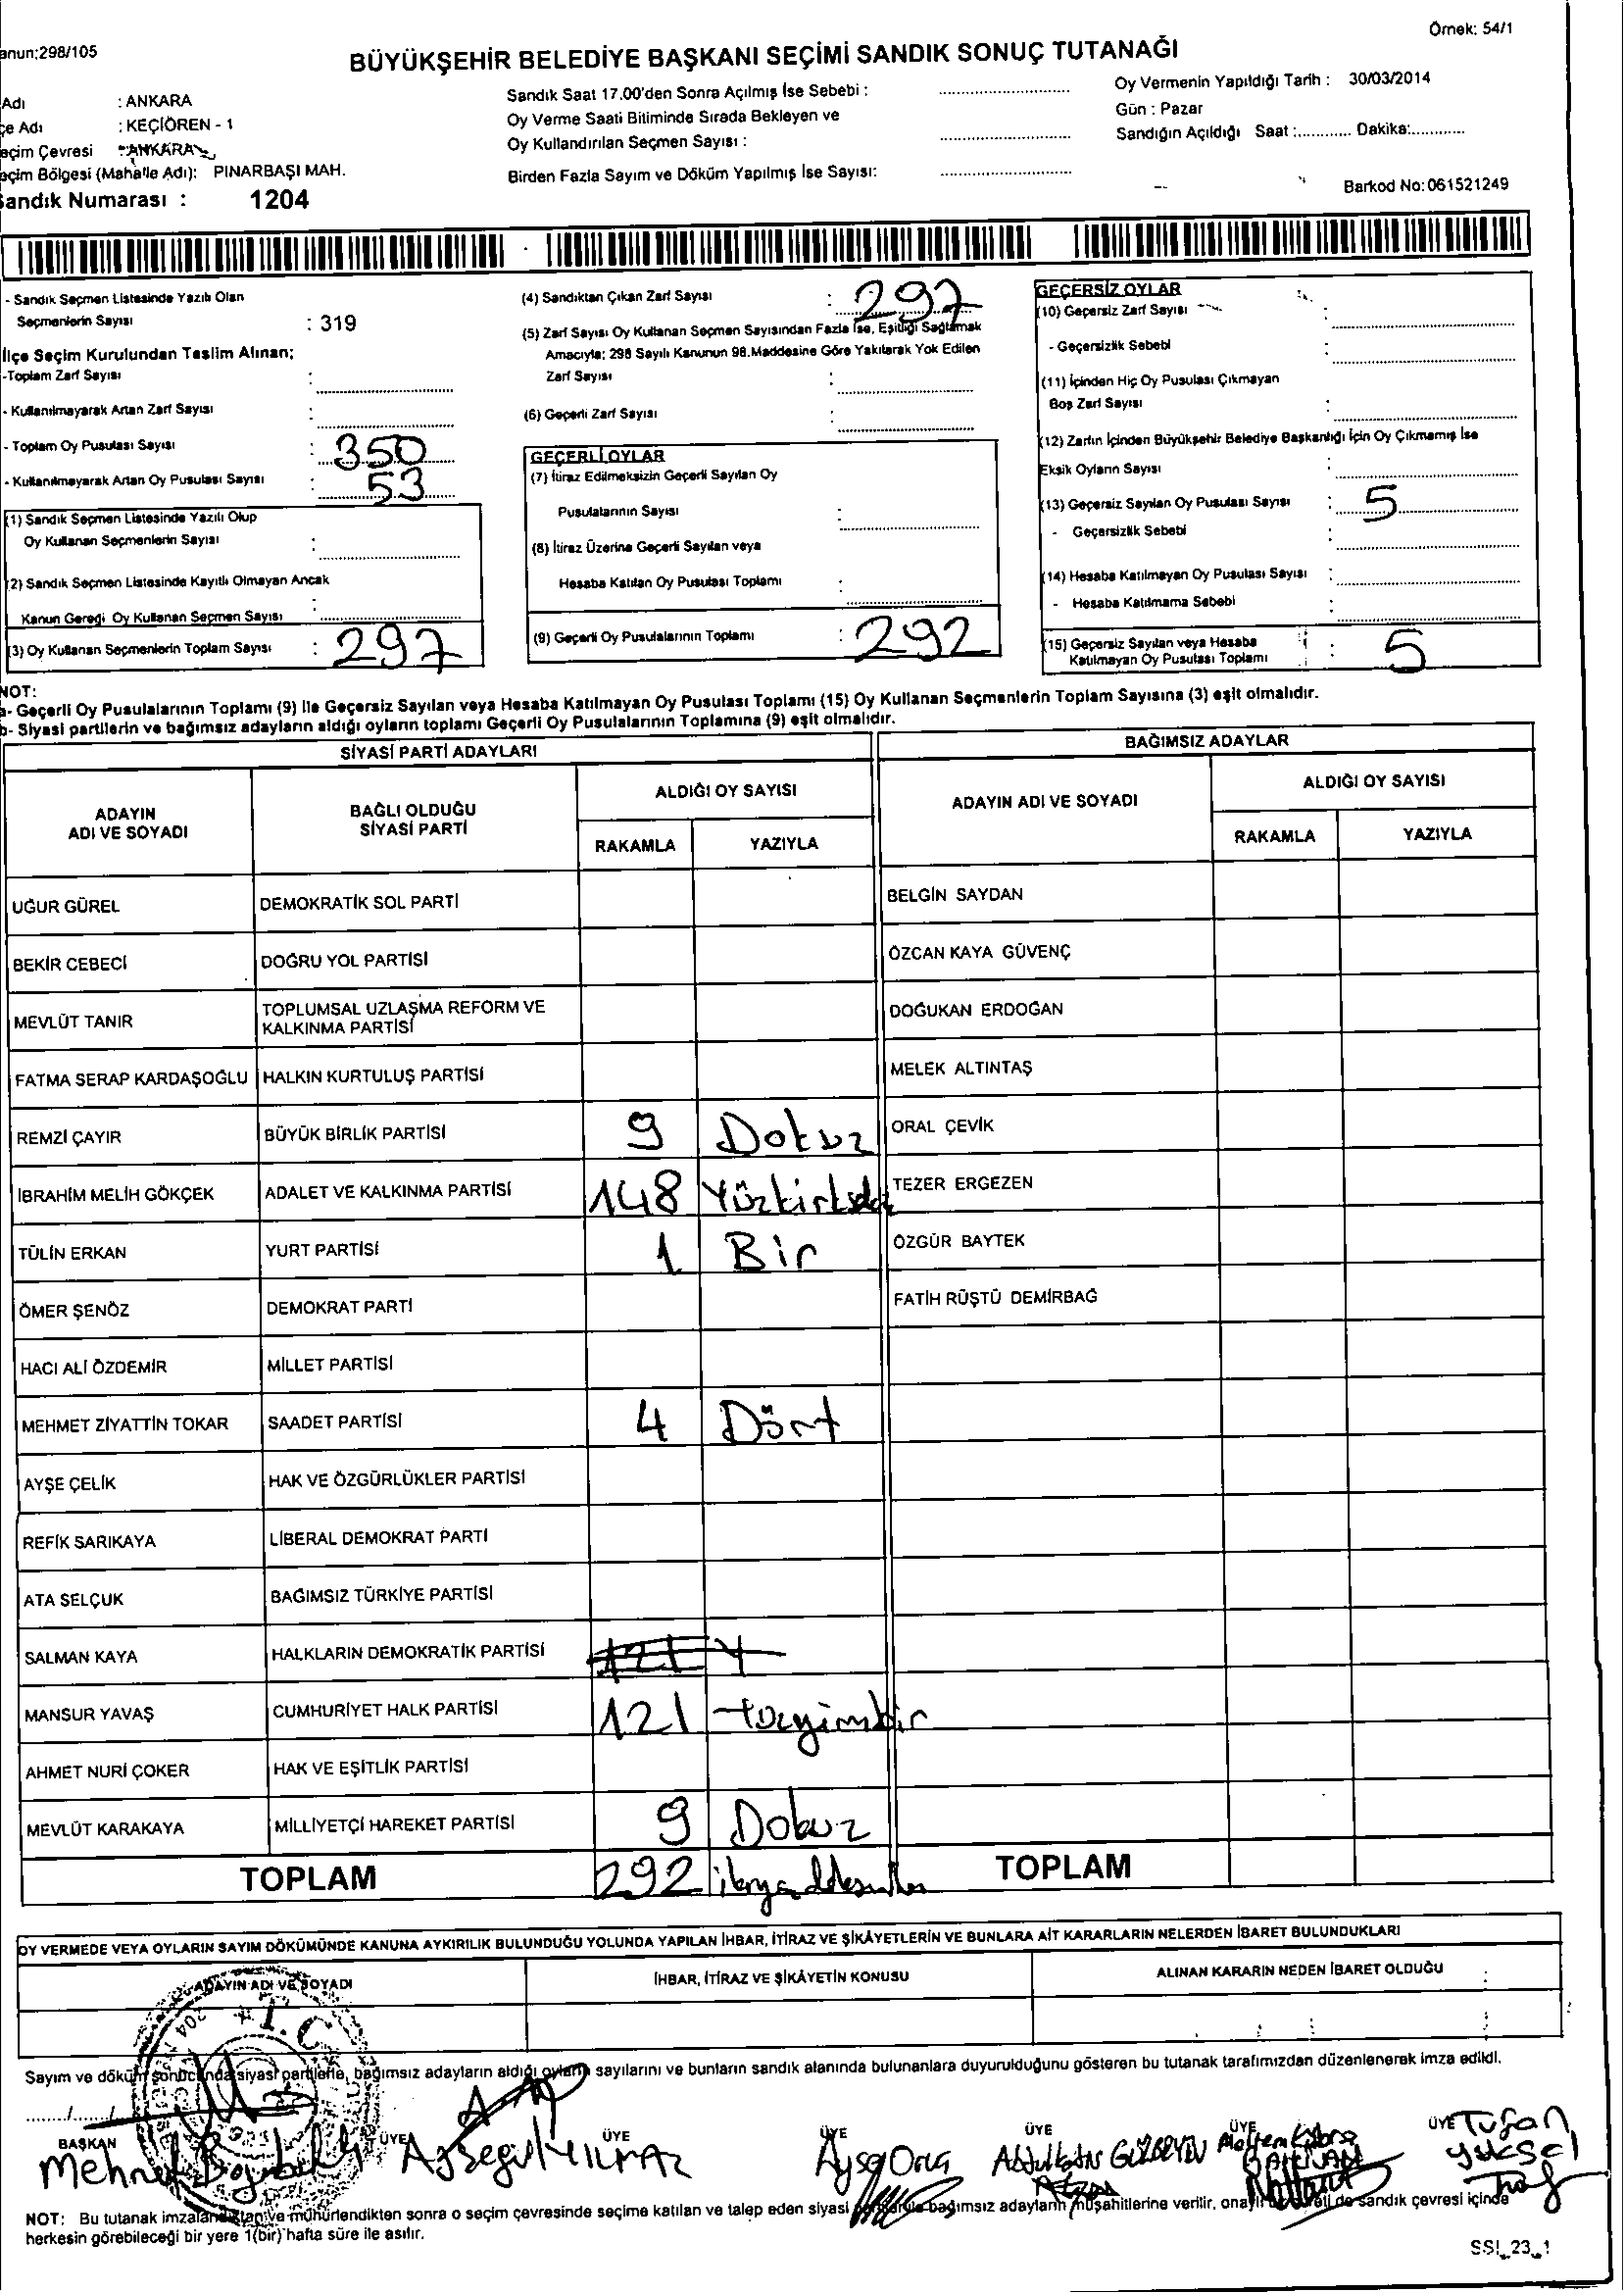 Örnek: 54/1
anun:298/105
BÜYÜKŞEHİR BELEDİYE BAŞKANI SEÇİMİ SANDIK SONUÇ TUTANAĞI
Adı : ANKARA
çe Adı : KEÇİÖREN - 1
eçim Çevresi : ANKARA
eçim Bölgesi (Mahalle Adı): PINARBAŞI MAH.
Sandık Numarası : 1204
Sandık Saat 17.00'den Sonra Açılmış İse Sebebi : ..............................
Oy Verme Saati Bitiminde Sırada Bekleyen ve
Oy Kullandırılan Seçmen Sayısı : ..............................
Birden Fazla Sayım ve Döküm Yapılmış İse Sayısı: ..............................
Oy Vermenin Yapıldığı Tarih : 30/03/2014
Gün : Pazar
Sandığın Açıldığı Saat :............ Dakika:............
Barkod No: 061521249
- Sandık Seçmen Listesinde Yazılı Olan
Seçmenlerin Sayısı : 319
İlçe Seçim Kurulundan Teslim Alınan;
-Toplam Zarf Sayısı :
- Kullanılmayarak Artan Zarf Sayısı :
- Toplam Oy Pusulası Sayısı : 350
- Kullanılmayarak Artan Oy Pusulası Sayısı : 53
(1) Sandık Seçmen Listesinde Yazılı Olup
Oy Kullanan Seçmenlerin Sayısı :
2) Sandık Seçmen Listesinde Kayıtlı Olmayan Ancak
Kanun Gereği Oy Kullanan Seçmen Sayısı :
(3) Oy Kullanan Seçmenlerin Toplam Sayısı : 297
(4) Sandıktan Çıkan Zarf Sayısı : 297
(5) Zarf Sayısı Oy Kullanan Seçmen Sayısından Fazla İse, Eşitliği Sağlamak
Amacıyla; 298 Sayılı Kanunun 98.Maddesine Göre Yakılarak Yok Edilen
Zarf Sayısı :
(6) Geçerli Zarf Sayısı :
GEÇERLİ OYLAR
(7) İtiraz Edilmeksizin Geçerli Sayılan Oy
Pusulalarının Sayısı :
(8) İtiraz Üzerine Geçerli Sayılan veya
Hesaba Katılan Oy Pusulası Toplamı :
(9) Geçerli Oy Pusulalarının Toplamı : 292
GEÇERSİZ OYLAR
(10) Geçersiz Zarf Sayısı :
- Geçersizlik Sebebi :
(11) İçinden Hiç Oy Pusulası Çıkmayan
Boş Zarf Sayısı :
(12) Zarfın İçinden Büyükşehir Belediye Başkanlığı İçin Oy Çıkmamış İse
Eksik Oyların Sayısı :
(13) Geçersiz Sayılan Oy Pusulası Sayısı : 5
- Geçersizlik Sebebi :
(14) Hesaba Katılmayan Oy Pusulası Sayısı :
- Hesaba Katılmama Sebebi :
(15) Geçersiz Sayılan veya Hesaba
Katılmayan Oy Pusulası Toplamı : 5
NOT:
a- Geçerli Oy Pusulalarının Toplamı (9) İle Geçersiz Sayılan veya Hesaba Katılmayan Oy Pusulası Toplamı (15) Oy Kullanan Seçmenlerin Toplam Sayısına (3) eşit olmalıdır.
b- Siyasi partilerin ve bağımsız adayların aldığı oyların toplamı Geçerli Oy Pusulalarının Toplamına (9) eşit olmalıdır.
SİYASİ PARTİ ADAYLARI
ADAYIN ADI VE SOYADI BAĞLI OLDUĞU SİYASİ PARTİ ALDIĞI OY SAYISI
RAKAMLA YAZIYLA
UĞUR GÜREL DEMOKRATİK SOL PARTİ
BEKİR CEBECİ DOĞRU YOL PARTİSİ
MEVLÜT TANIR TOPLUMSAL UZLAŞMA REFORM VE KALKINMA PARTİSİ
FATMA SERAP KARDAŞOĞLU HALKIN KURTULUŞ PARTİSİ
REMZİ ÇAYIR BÜYÜK BİRLİK PARTİSİ 9 Dokuz
İBRAHİM MELİH GÖKÇEK ADALET VE KALKINMA PARTİSİ 148
TÜLİN ERKAN YURT PARTİSİ 1 Bir
ÖMER ŞENÖZ DEMOKRAT PARTİ
HACI ALİ ÖZDEMİR MİLLET PARTİSİ
MEHMET ZİYATTİN TOKAR SAADET PARTİSİ 4 Dört
AYŞE ÇELİK HAK VE ÖZGÜRLÜKLER PARTİSİ
REFİK SARIKAYA LİBERAL DEMOKRAT PARTİ
ATA SELÇUK BAĞIMSIZ TÜRKİYE PARTİSİ
SALMAN KAYA HALKLARIN DEMOKRATİK PARTİSİ
MANSUR YAVAŞ CUMHURİYET HALK PARTİSİ 121
AHMET NURİ ÇOKER HAK VE EŞİTLİK PARTİSİ
MEVLÜT KARAKAYA MİLLİYETÇİ HAREKET PARTİSİ 9 Dokuz
TOPLAM 292
BAĞIMSIZ ADAYLAR
ADAYIN ADI VE SOYADI ALDIĞI OY SAYISI
RAKAMLA YAZIYLA
BELGİN SAYDAN
ÖZCAN KAYA GÜVENÇ
DOĞUKAN ERDOĞAN
MELEK ALTINTAŞ
ORAL ÇEVİK
TEZER ERGEZEN
ÖZGÜR BAYTEK
FATİH RÜŞTÜ DEMİRBAĞ
TOPLAM
OY VERMEDE VEYA OYLARIN SAYIM DÖKÜMÜNDE KANUNA AYKIRILIK BULUNDUĞU YOLUNDA YAPILAN İHBAR, İTİRAZ VE ŞİKÂYETLERİN VE BUNLARA AİT KARARLARIN NELERDEN İBARET BULUNDUKLARI
ADAYIN ADI VE SOYADI İHBAR, İTİRAZ VE ŞİKÂYETİN KONUSU ALINAN KARARIN NEDEN İBARET OLDUĞU
T.C
Sayım ve döküm sonucunda siyasi partilerle, bağımsız adayların aldığı oyların sayılarını ve bunların sandık alanında bulunanlara duyurulduğunu gösteren bu tutanak tarafımızdan düzenlenerek imza edildi.
......./......./
BAŞKAN ÜYE ÜYE ÜYE ÜYE ÜYE ÜYE
Mehmet Ayşegül YILMAZ Ayşe Tufan yüksel
NOT: Bu tutanak imzalandıktan ve mühürlendikten sonra o seçim çevresinde seçime katılan ve talep eden siyasi partilerle bağımsız adayların müşahitlerine verilir, onaylı bir sureti de sandık çevresi içinde
herkesin görebileceği bir yere 1(bir) hafta süre ile asılır.
SSI_23_1